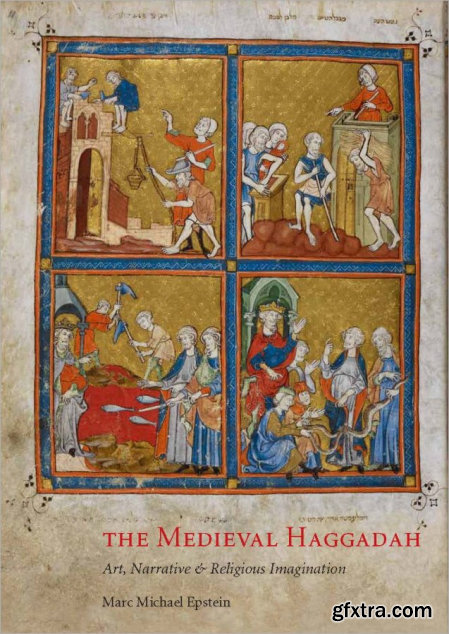 THE MEDIEVAL HAGGADAH
Art, Narrative & Religious Imagination
Marc Michael Epstein
gfxtra.com